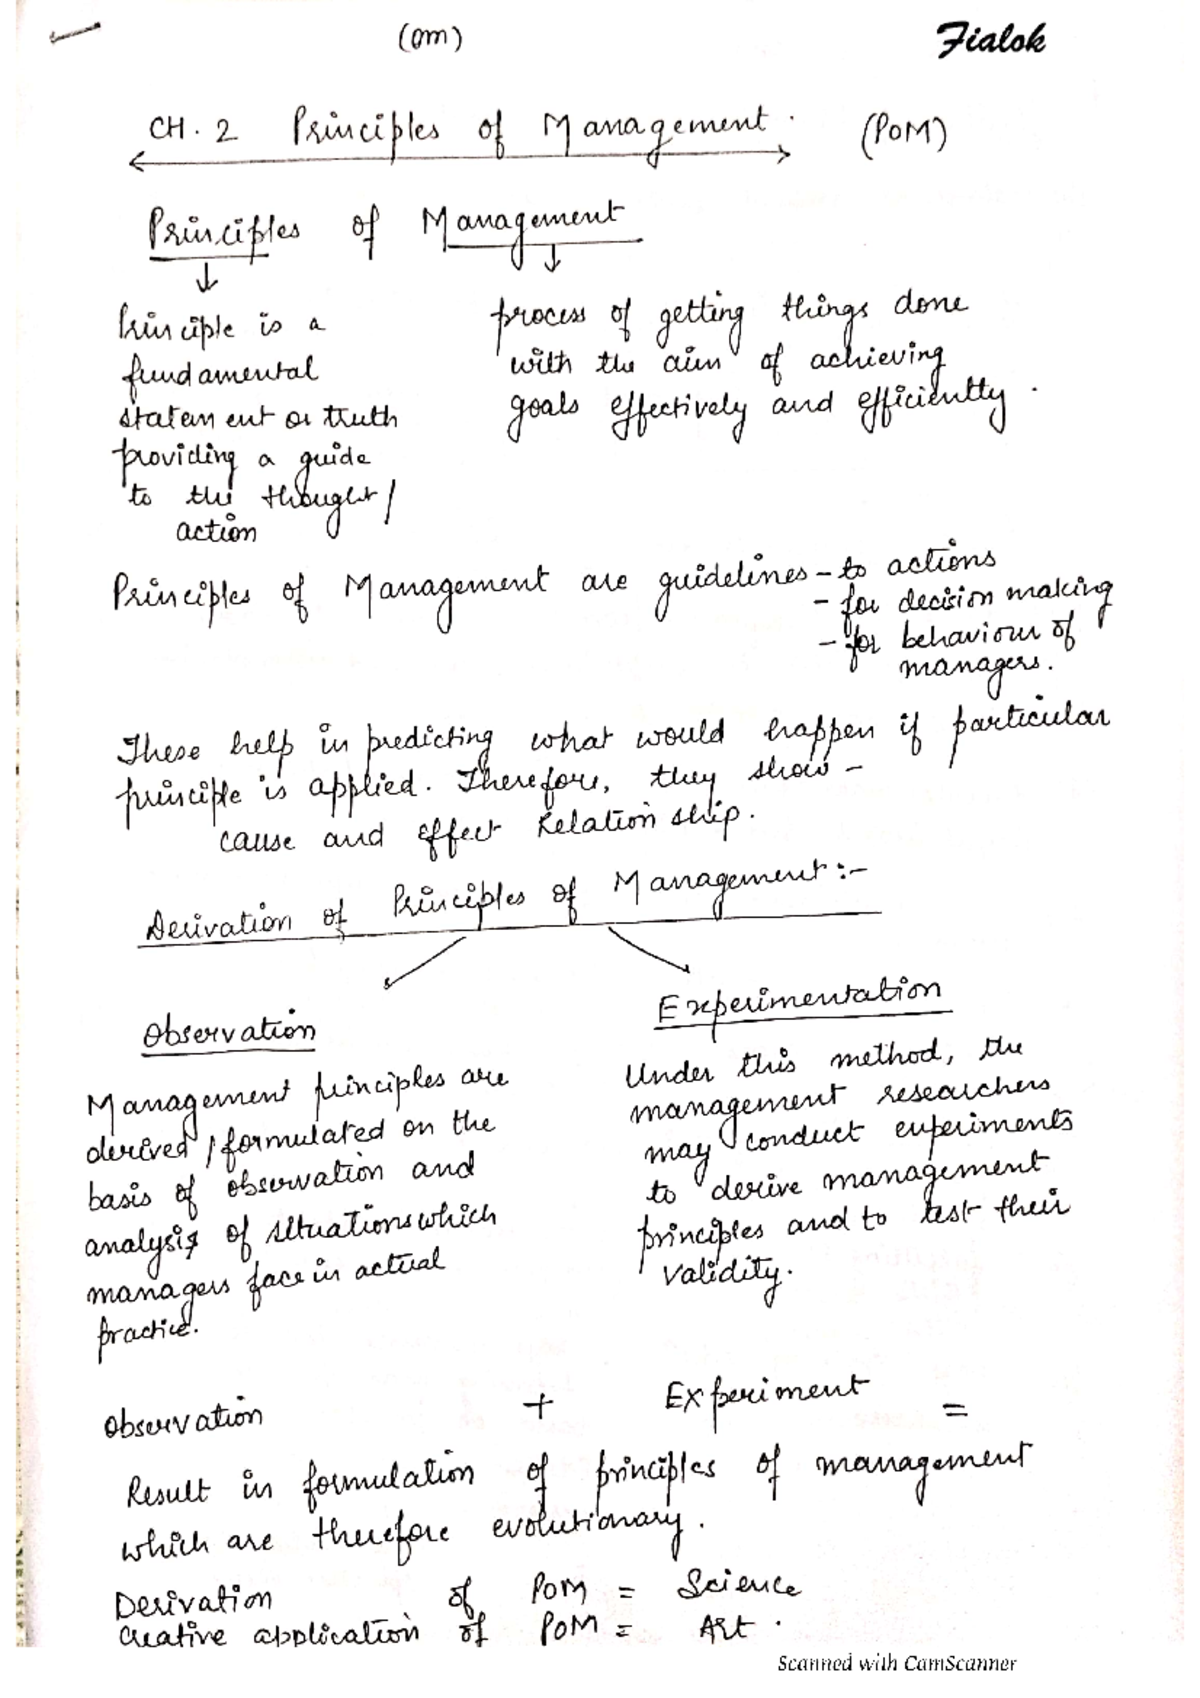 (om)
Fialok
CH. 2 Principles of Management. (POM)
Principles of Management
Principle is a
fundamental
statement or truth
providing a guide
to the thought /
action
process of getting things done
with the aim of achieving
goals effectively and efficiently.
Principles of Management are guidelines - to actions
- for decision making
- for behaviour of
managers.
These help in predicting what would happen if particular
principle is applied. Therefore, they show -
cause and effect Relationship.
Derivation of Principles of Management :-
Observation
Management principles are
derived / formulated on the
basis of observation and
analysis of situations which
managers face in actual
practice.
Experimentation
Under this method, the
management researchers
may conduct experiments
to derive management
principles and to test their
validity.
Observation + Experiment =
Result in formulation of principles of management
which are therefore evolutionary.
Derivation of POM = Science
Creative application of POM = Art.
Scanned with CamScanner